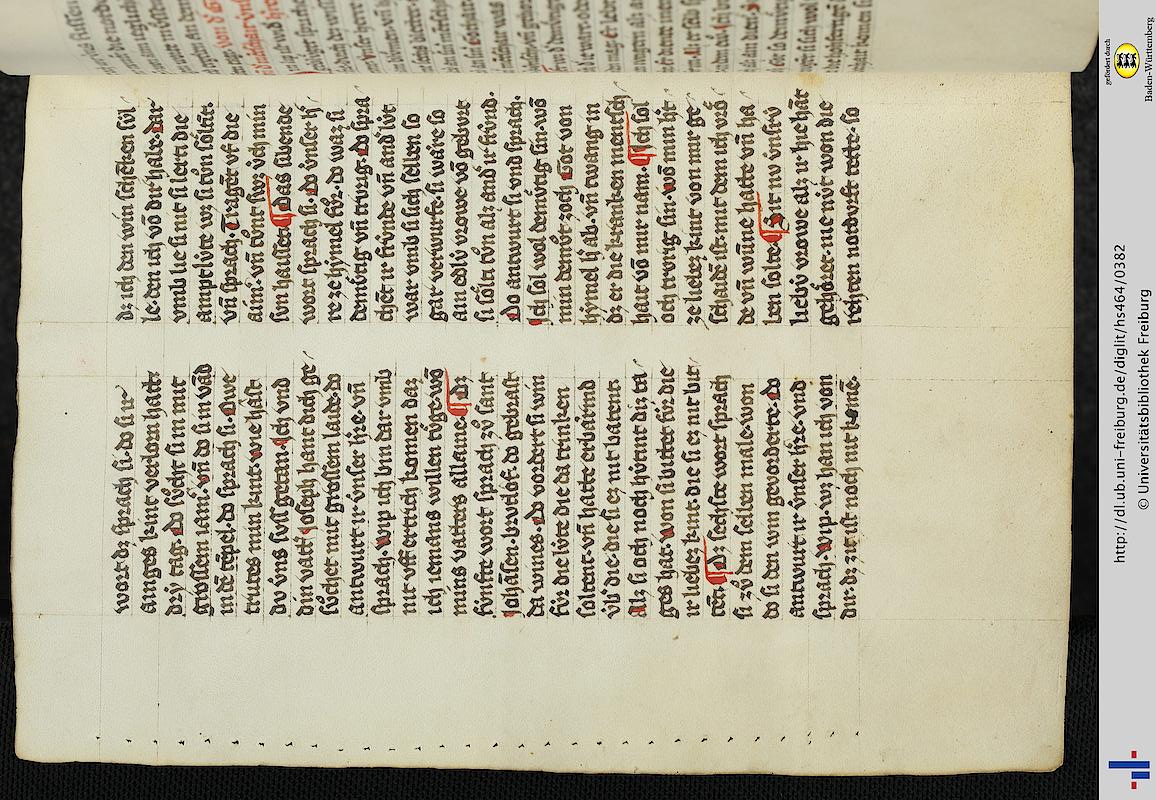 wort dz sprach si. do si ir
ainges kint verlorn hatt
dry tag. Do sůcht si in mit
grossem iam̄. vn̄ do si in vād
in dē tēpel. do sprach si. Owe
trutes min kint. wie hast
du vns suss getan. Ich vnd
din vatt' Joseph hant dich ge
sůchet mit grossem laide. do
antwurt ir vnser h're. vn̄
sprach. Wip ich bin dar vmb
nit vff ertrich komen daz
ich iemans willen túge. wō
mins vatters allaine. Dz
fúnfte wort sprach zů sant
Johāsen brutlof. do gebrast
da wines. Do vordert si win
fúr die lúte die da trinken
soltent. vn̄ hatte erbarmd
úb' die. die si ez nit batent.
Alz si och noch húnt diz ta
ges hat. Won si bittet fúr die
ir liebez kint. die si ez nit bit
tēt. Dz sechste wort sprach
si zů dem selben male. won
do si den win gevorderte. do
antwurt ir vnser h're. vnd
sprach. Wip. wz han ich von
dir. dz zit ist noch nit komē.
dz ich den win schēken súl
le. den ich vō dir hale. Dar
vmb lie si nit si lerti die
amptlúte wz si tůn sóltēt.
vn̄ sprach. Tragēt vf die
vn̄ tůnt swz úch min
sun haissen. Das sibende
wort sprach si. do vnser h'
re ze hymel fůr. do waz si
demútig vn̄ trurig. Do spra
chēt ir frúnde vn̄ and' lút
war vmb si sich sellen so
gar verwurfe. si wāre so
ain edlú vrowe vō geburt
si sólti tůn alz and' ir frúnd.
Do antwurt si vnd sprach.
Ich sol wol demútig sin. wō
min demůt zoch Got von
hymel h'ab. vn̄ twang in
dz er die kranken mensch
hait vō mir nam. Ich sol
och trurig sin. wō min hit
ze liebez kint von mir ge
schaidē ist. mit dem ich vró
de vn̄ wūne hatte vn̄ ha
ben solte. Sit nv vnsrv
liebú vrowe alz ir hie hāt
gehóret. nie nút won die
rechten nodurft rette. so
http://dl.ub.uni-freiburg.de/diglit/hs464/0382
© Universitätsbibliothek Freiburg
gefördert durch
Baden-Württemberg